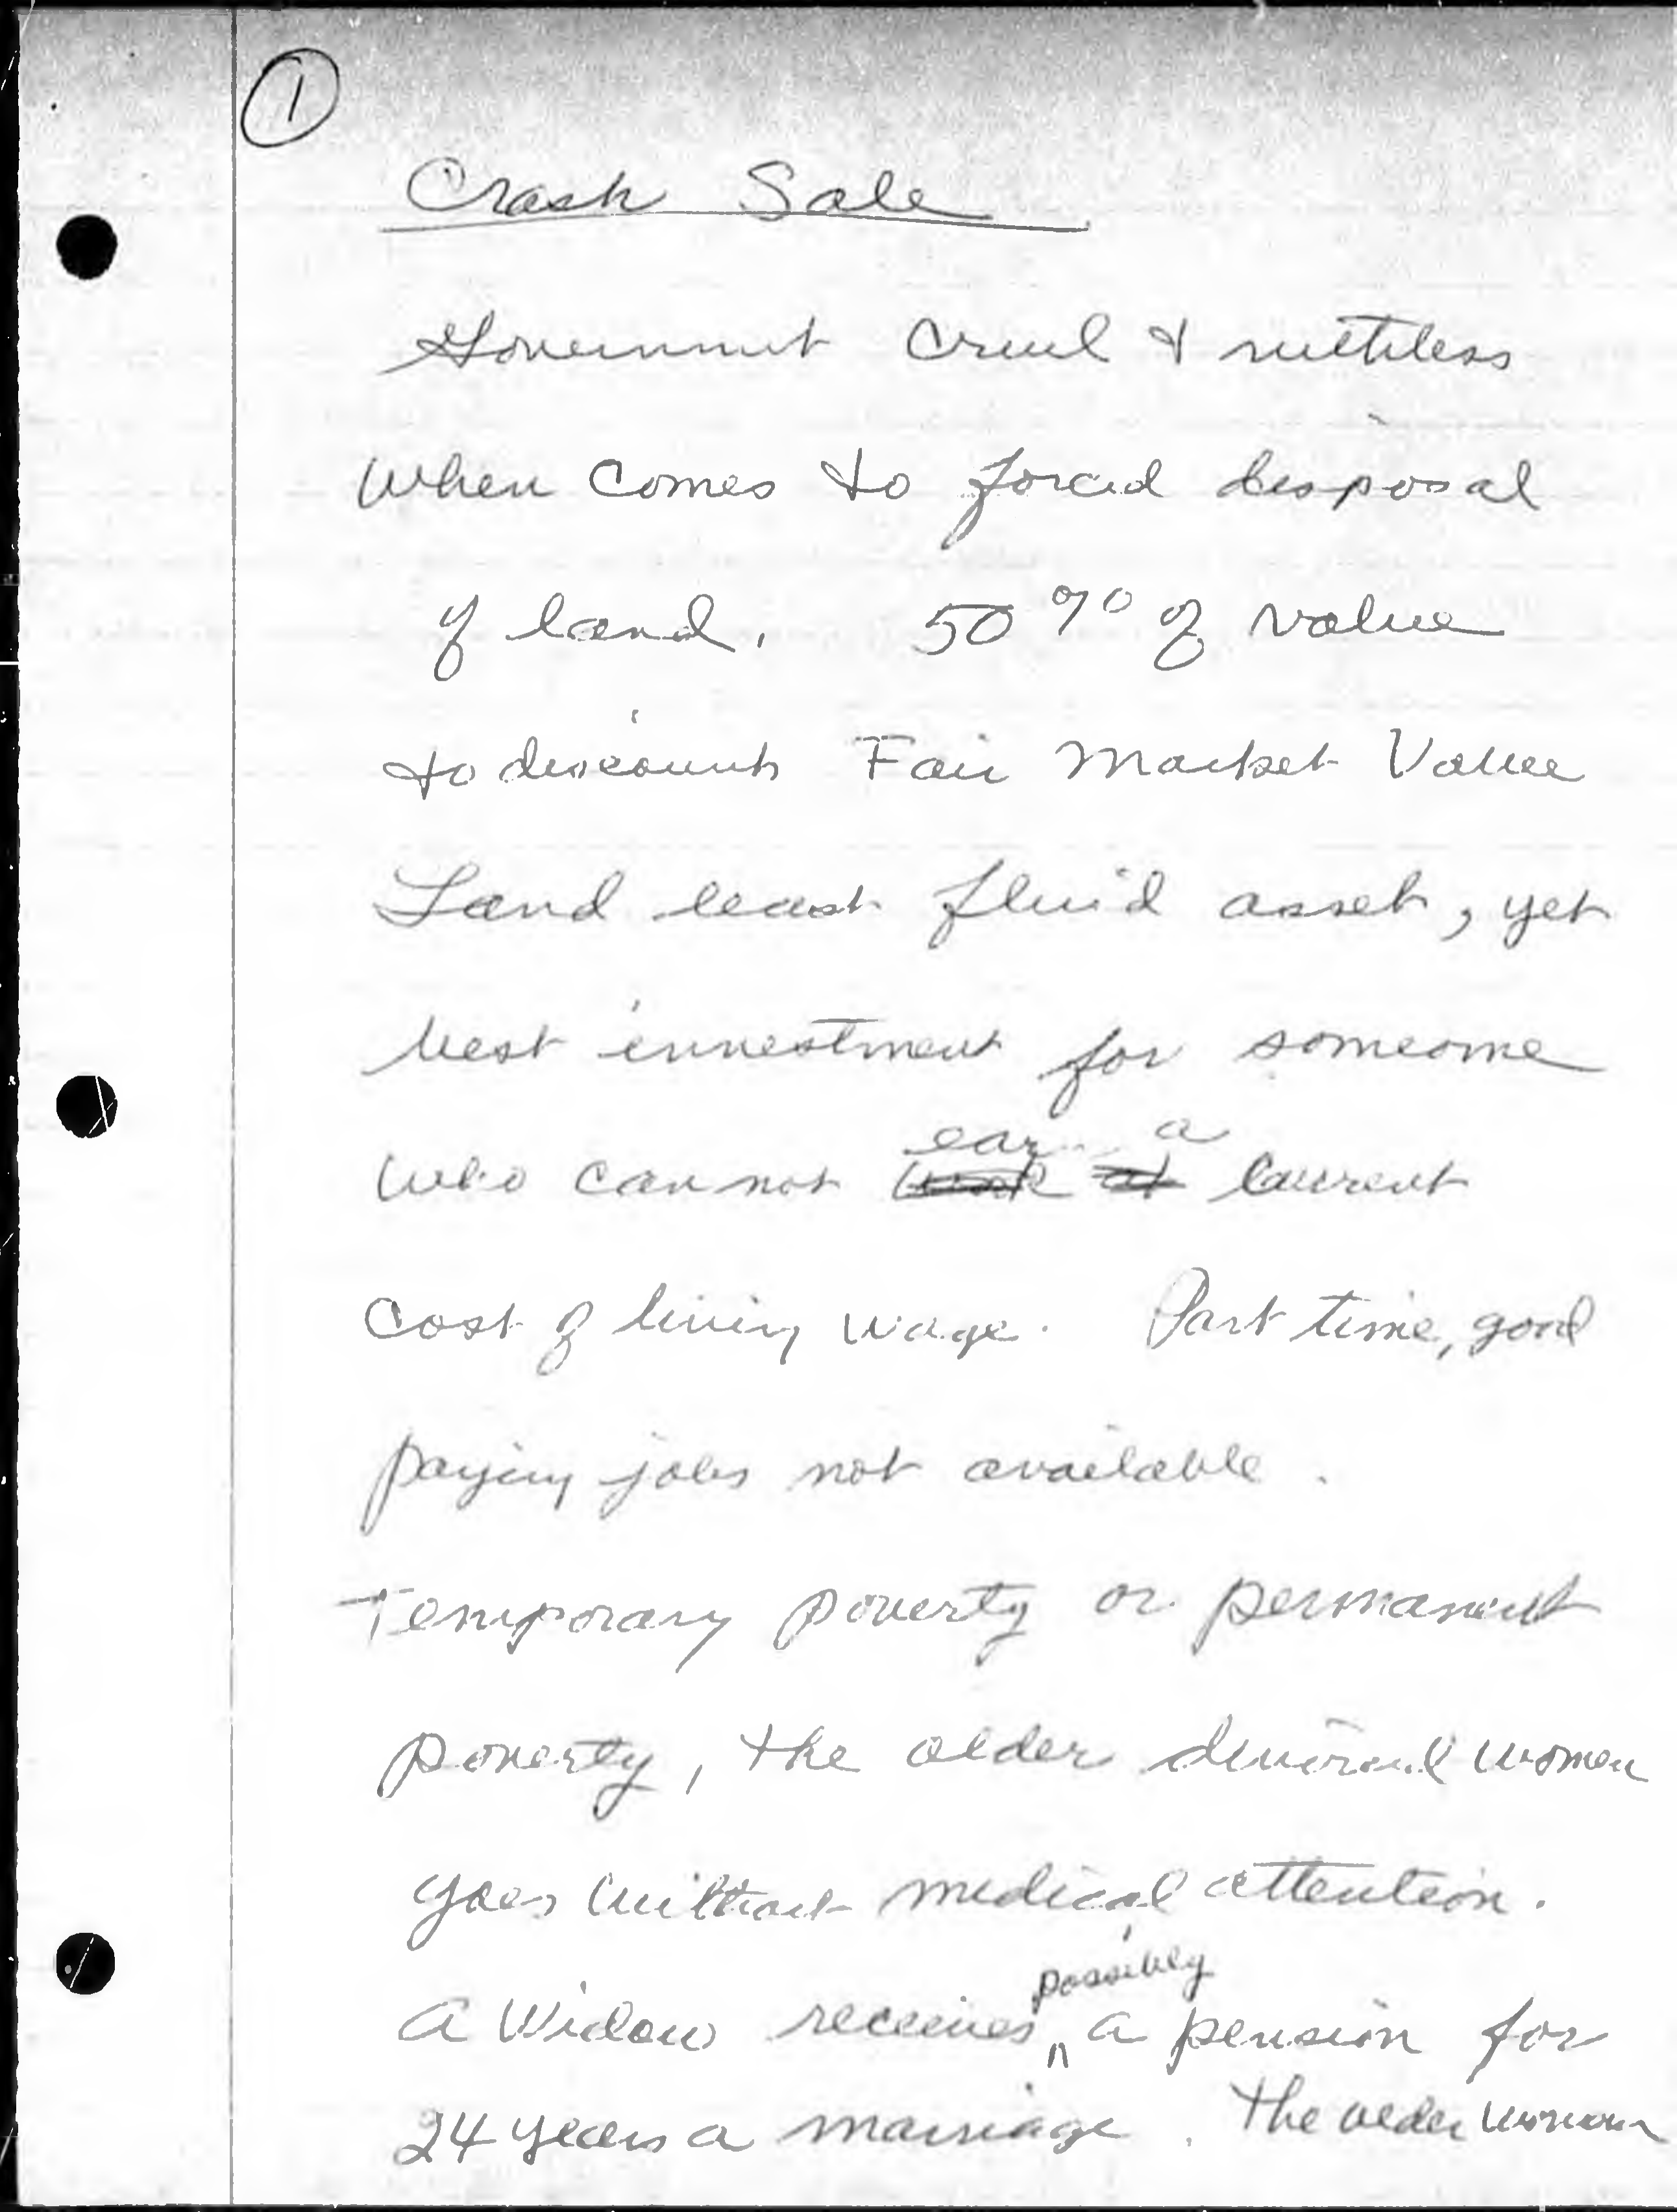 1
Crash Sale
Government cruel & ruthless
when comes to forced disposal
of land. 50% of value
to discount Fair Market Value
Land least fluid asset, yet
best investment for someone
who cannot earn a
work at current
cost of living wage. Part time, good
paying jobs not available.
Temporary poverty or permanent
poverty, the older divorced women
goes without medical attention.
possibly
A Widow receives ^ a pension for
24 years a marriage. The older woman